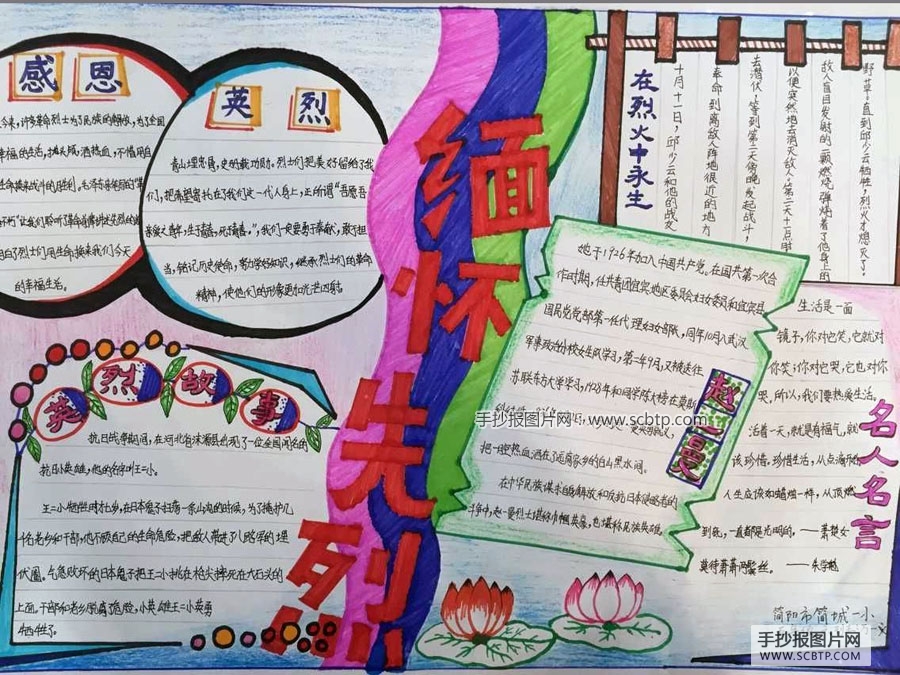 感恩
英烈
青山埋忠骨,史册载功勋。烈士们把美好留给了我
们,把希望寄托在了我们这一代人身上,正所谓“吾愿吾
亲爱之青年,生于青春,死于青春。”,我们一定要勇于奉献,敢于担
当,铭记历史使命,努力学好知识,继承烈士们的革命
精神,使他们的形象更加光芒四射。
的幸福生活。
缅怀先烈
在烈火中永生
十月十一日,邱少云和他的战友
奉命到离敌人阵地很近的地方
去潜伏,等到第二天傍晚发起战斗,
以便突然地去消灭敌人。第二天十一点时
敌人盲目发射的一颗燃烧弹烧着了他身上的
野草,直到邱少云牺牲,烈火才熄灭了。
英烈故事
抗日战争期间,在河北省涞源县出现了一位全国闻名的
抗日小英雄,他的名字叫王二小。
王二小牺牲时才
在日本鬼子扫荡一条山沟的时候,为了掩护几
千名老乡和干部,他不顾自己的生命危险,把敌人带进了八路军的埋
伏圈。气急败坏的日本鬼子把王二小挑在枪尖摔死在大石头的
上面。干部和老乡脱离危险,小英雄王二小英勇
牺牲了。
她于1926年加入中国共产党。在国共第一次合
作时期,任共青团宜宾地区委员会妇女委员和宜宾县
国民党党部第一任代理妇女部长,同年10月入武汉
军事政治
女生队学习,第二年9月,又被送往
苏联东方大学学习,1928年和同学陈大榜在莫斯
把一腔热血洒在了远离家乡的白山黑水间。
在中华民族谋求自由解放和反抗日本侵略者的
斗争中,赵一曼烈士堪称巾帼英豪,也堪称民族英雄。
赵一曼
生活是一面
镜子,你对它笑,它就对
你笑;你对它哭,它也对你
哭,所以,我们要热爱生活。
活着一天,就是有福气,就
该珍惜。珍惜生活,从点滴
人生应该如蜡烛一样,从顶燃
到底,一直都是光明的。——萧楚女
莫待萧萧两鬓丝。——朱学勉
名人名言
简阳市简城一小
手抄报图片网:www.scbtp.com
手抄报图片网
WWW.SCBTP.COM